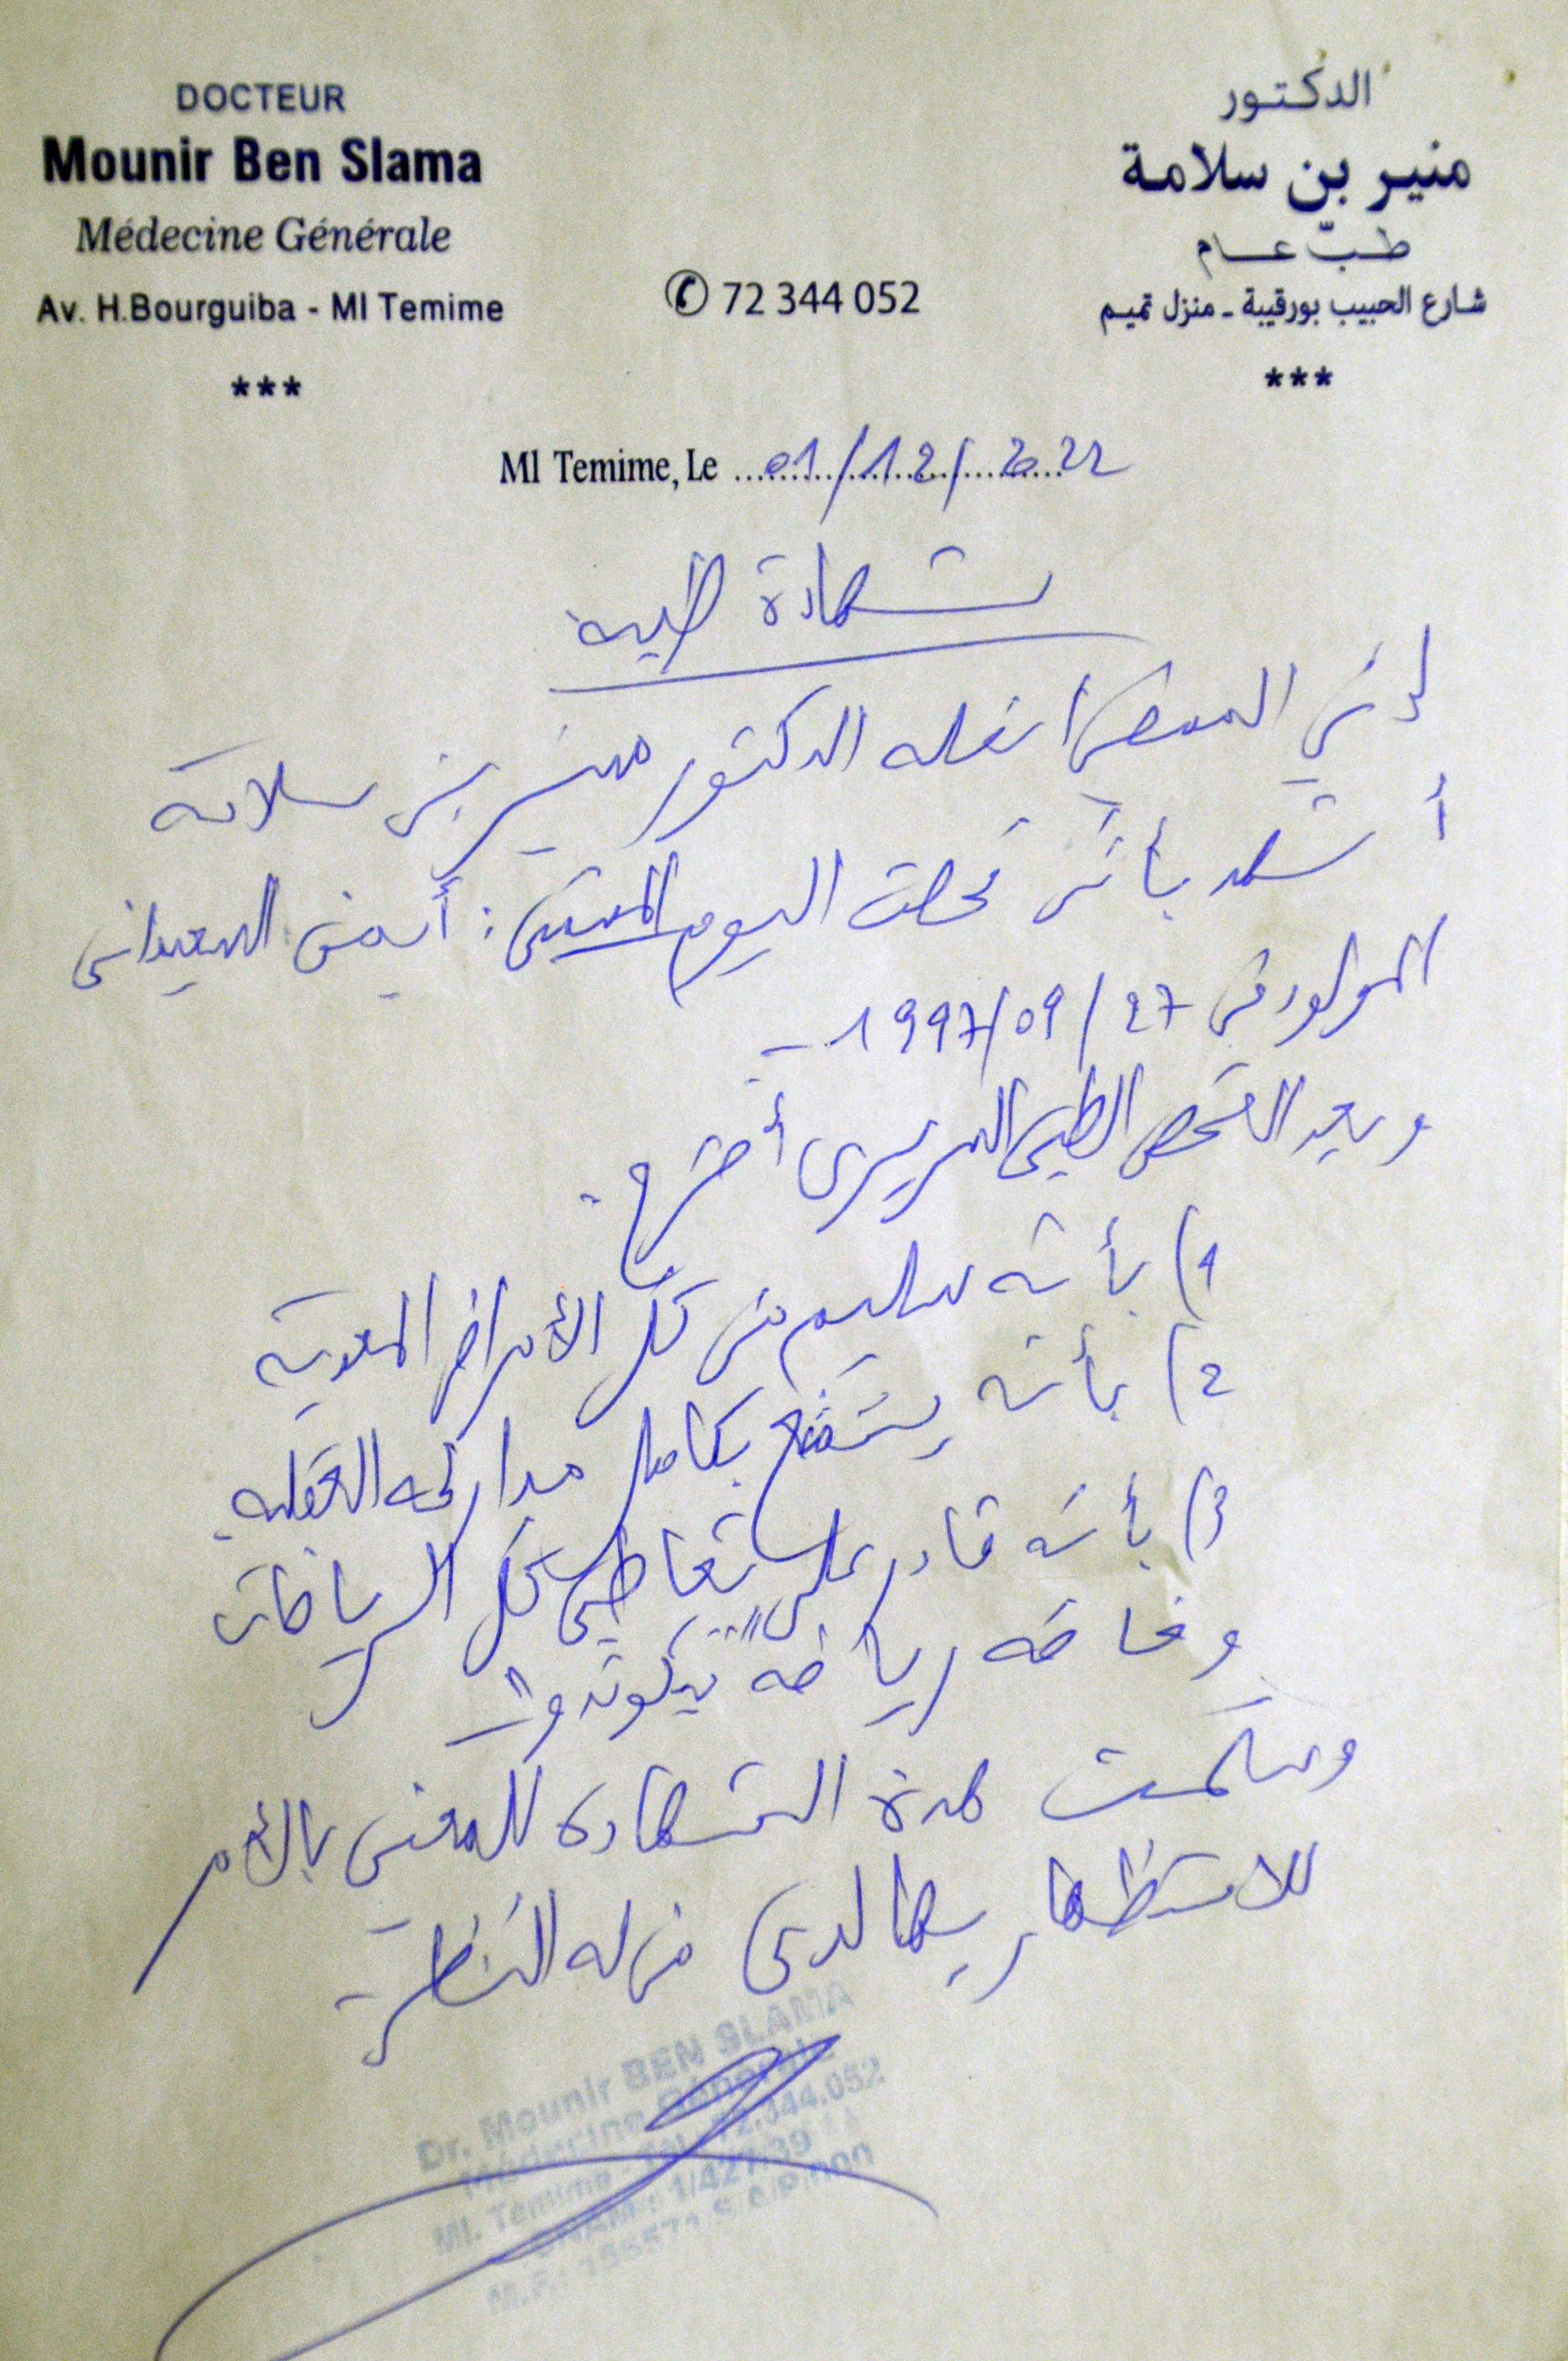 DOCTEUR
Mounir Ben Slama
Médecine Générale
Av. H.Bourguiba - Ml Temime
***
✆ 72 344 052
الدكتور
منير بن سلامة
طبّ عام
شارع الحبيب بورقيبة ـ منزل تميم
***
Ml Temime, Le 01/12/2022
شهادة طبية
إني الممضي أسفله الدكتور منير بن سلامة
أشهد بأني فحصت اليوم المسمى : أيمن السعيداني
المولود في 27/09/1997 -
وبعد الفحص الطبي السريري أصرح :
1) بأنه سليم من كل الأمراض المعدية
2) بأنه يتمتع بكامل مداركه العقلية
3) بأنه قادر على تعاطي كل الرياضات
وخاصة رياضة "تيكوندو" -
وسلمت هذه الشهادة للمعني بالأمر
للاستظهار بها لدى من له النظر -
Dr. Mounir BEN SLAMA
Médecine Générale
Ml. Temime - Tél : 72.344.052